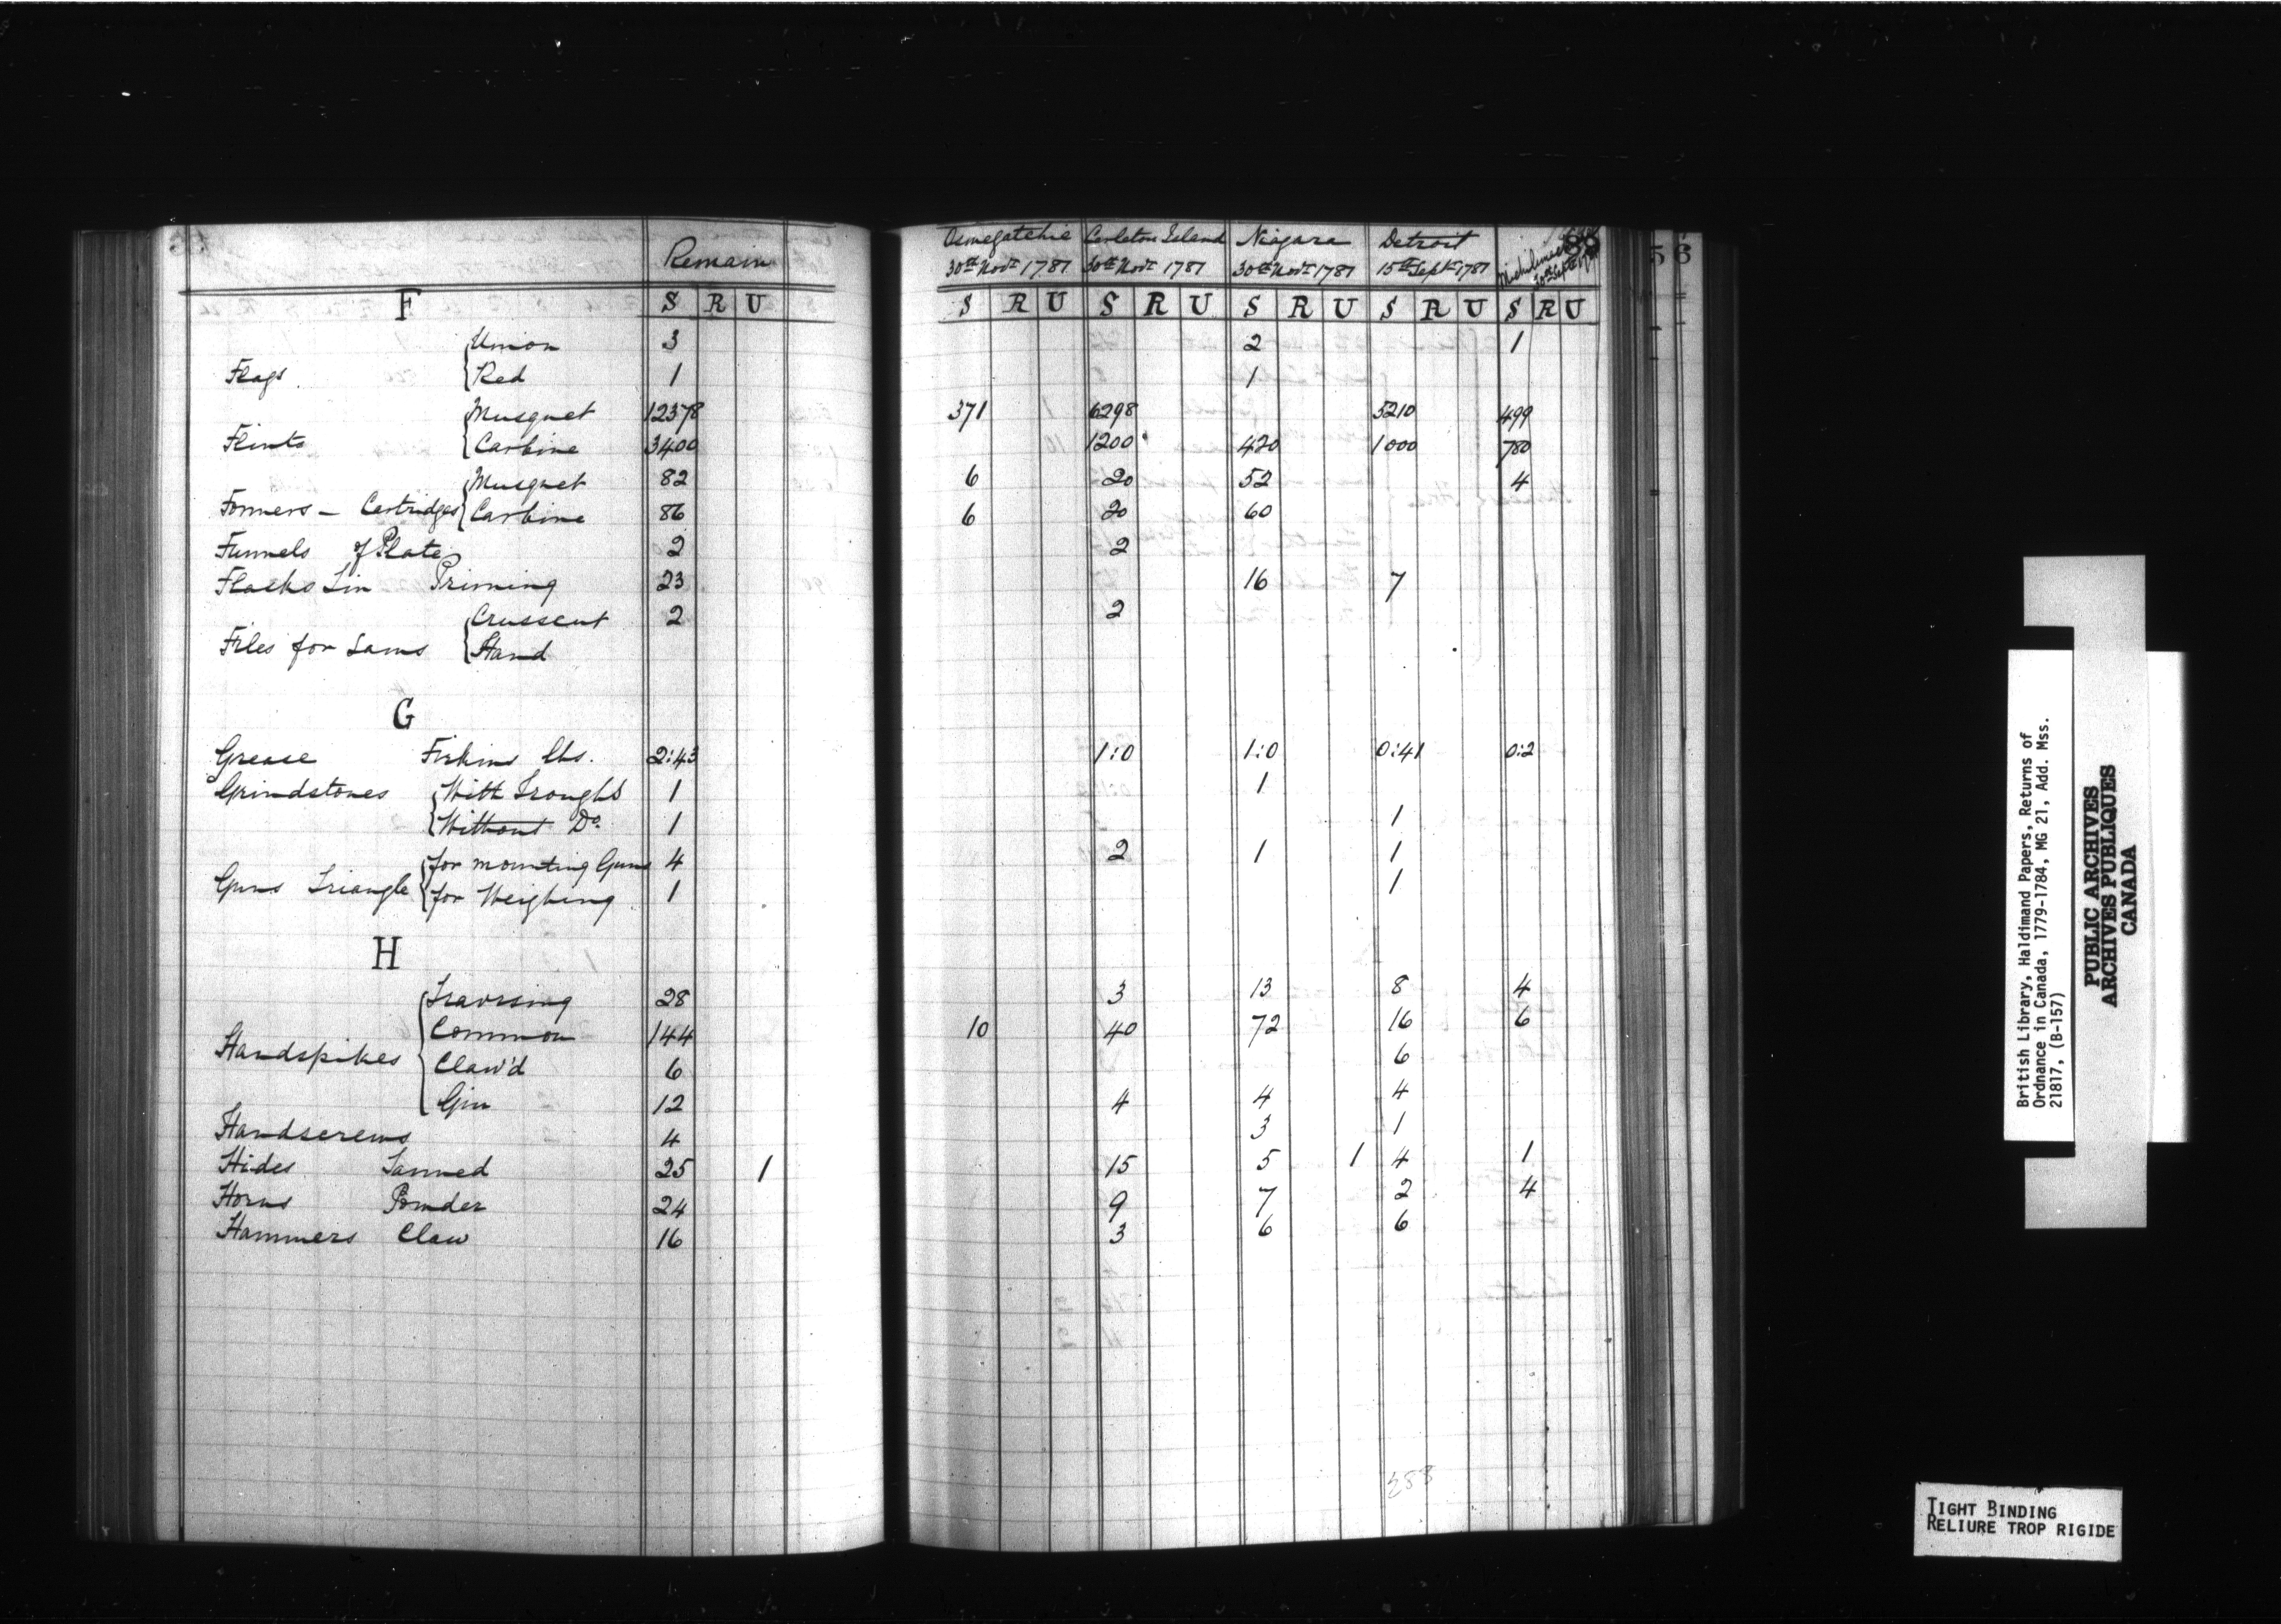 Remain
F S R U
Oswegatchie Carleton Island Niagara Detroit Michilimac
30th Novr 1781 30th Novr 1781 30th Novr 1781 15th Septr 1781 30th Septr 1781
S R U S R U S R U S R U S R U
56
Union 3 2 1
Flags Red 1 1
Musquet 12378 371 6298 5210 499
Flints Carbine 3400 1200 420 1000 780
Musquet 82 6 20 52 4
Formers - Cartridges Carbine 86 6 20 60
Funnels of Plate 2 2
Flasks Tin Priming 23 16 7
Crusscut 2 2
Files for Saws Hand
G
Grease Firkins lbs. 2:43 1:0 1:0 0:41 0:2
Grindstones With Troughs 1 1
Without Do. 1 1
for mounting Guns 4 2 1 1
Guns Triangle for Weighing 1 1
H
Traversing 28 3 13 8 4
Common 144 10 40 72 16 6
Handspikes
Claw'd 6 6
Gin 12 4 4 4
Handscrews 4 3 1
Hides Tanned 25 1 15 5 1 4 1
Horns Powder 24 9 7 2 4
Hammers Claw 16 3 6 6
British Library, Haldimand Papers, Returns of
Ordnance in Canada, 1779-1784, MG 21, Add. Mss.
21817, (B-157)
PUBLIC ARCHIVES
ARCHIVES PUBLIQUES
CANADA
TIGHT BINDING
RELIURE TROP RIGIDE